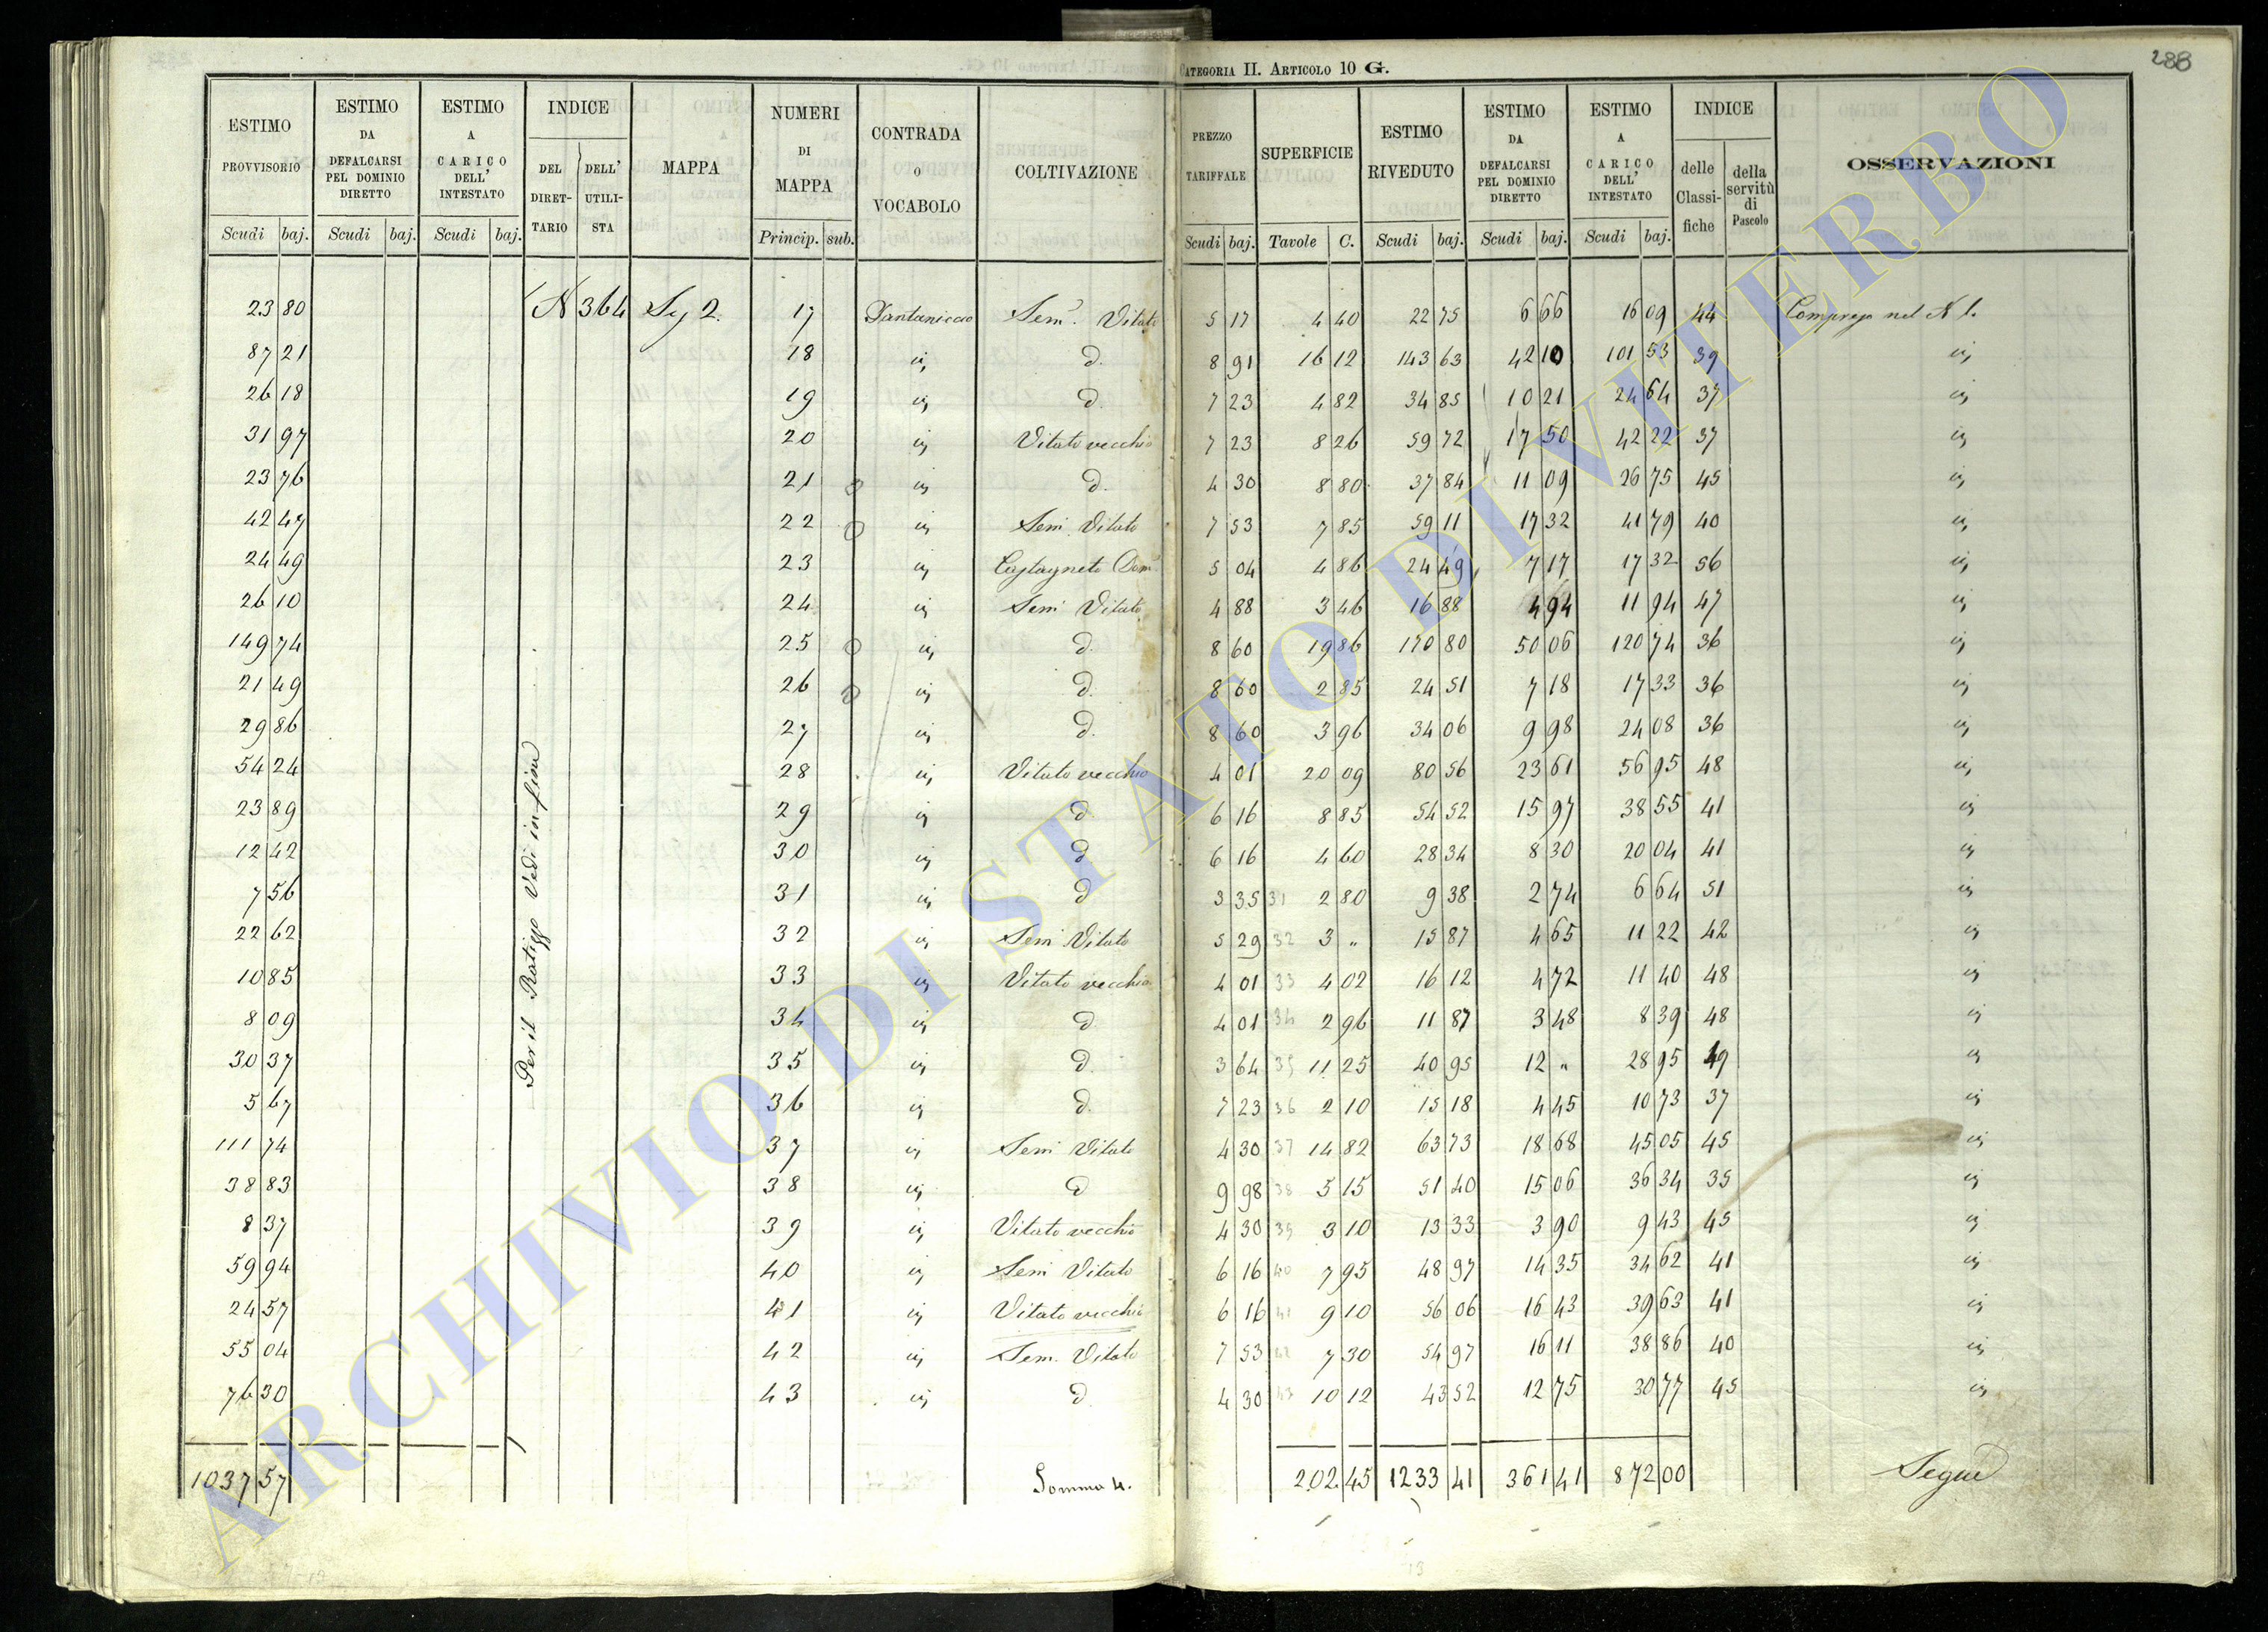 CATEGORIA II. ARTICOLO 10 G.
288
ESTIMO PROVVISORIO | ESTIMO DA DEFALCARSI PEL DOMINIO DIRETTO | ESTIMO A CARICO DELL' INTESTATO | INDICE DEL DIRETTARIO | DELL' UTILISTA | MAPPA | NUMERI DI MAPPA | CONTRADA O VOCABOLO | COLTIVAZIONE | PREZZO TARIFFALE | SUPERFICIE | ESTIMO RIVEDUTO | ESTIMO DA DEFALCARSI PEL DOMINIO DIRETTO | ESTIMO A CARICO DELL' INTESTATO | INDICE delle Classifiche | della servitù di Pascolo | OSSERVAZIONI
Scudi baj. | Scudi baj. | Scudi baj. | Princip. sub. | Scudi baj. | Tavole C. | Scudi baj. | Scudi baj. | Scudi baj.
23 80 | N 364 | 17 | Sem. Vitato | 5 17 | 4 40 | 22 75 | 6 66 | 16 09 | 44 | nel N 1.
87 21 | 18 | d. | 8 91 | 16 12 | 143 63 | 42 10 | 101 53 | 39
26 18 | 19 | d. | 7 23 | 4 82 | 34 85 | 10 21 | 24 64 | 37
31 97 | 20 | Vitato vecchio | 7 23 | 8 26 | 59 72 | 17 50 | 42 22 | 37
23 76 | 21 | d. | 4 30 | 8 80 | 37 84 | 11 09 | 26 75 | 45
42 47 | 22 | Sem. Vitato | 7 53 | 7 85 | 59 11 | 17 32 | 41 79 | 40
24 49 | 23 | Castagneto Dom. | 5 04 | 4 86 | 24 49 | 7 17 | 17 32 | 56
26 10 | 24 | Sem. Vitato | 4 88 | 3 46 | 16 88 | 4 94 | 11 94 | 47
149 74 | 25 | d. | 8 60 | 19 86 | 170 80 | 50 06 | 120 74 | 36
21 49 | 26 | d. | 8 60 | 2 85 | 24 51 | 7 18 | 17 33 | 36
29 86 | 27 | d. | 8 60 | 3 96 | 34 06 | 9 98 | 24 08 | 36
54 24 | 28 | Vitato vecchio | 4 01 | 20 09 | 80 56 | 23 61 | 56 95 | 48
23 89 | 29 | d | 6 16 | 8 85 | 54 52 | 15 97 | 38 55 | 41
12 42 | 30 | d | 6 16 | 4 60 | 28 34 | 8 30 | 20 04 | 41
7 56 | 31 | d | 3 35 | 31 | 2 80 | 9 38 | 2 74 | 6 64 | 51
22 62 | 32 | Sem Vitato | 5 29 | 32 | 3 " | 15 87 | 4 65 | 11 22 | 42
10 85 | 33 | Vitato vecchio | 4 01 | 33 | 4 02 | 16 12 | 4 72 | 11 40 | 48
8 09 | 34 | d | 4 01 | 34 | 2 96 | 11 87 | 3 48 | 8 39 | 48
30 37 | 35 | d. | 3 64 | 35 | 11 25 | 40 95 | 12 " | 28 95 | 49
5 67 | 36 | d. | 7 23 | 36 | 2 10 | 15 18 | 4 45 | 10 73 | 37
111 74 | 37 | Sem Vitato | 4 30 | 37 | 14 82 | 63 73 | 18 68 | 45 05 | 45
38 83 | 38 | d | 9 98 | 38 | 5 15 | 51 40 | 15 06 | 36 34 | 35
8 37 | 39 | Vitato vecchio | 4 30 | 39 | 3 10 | 13 33 | 3 90 | 9 43 | 45
59 94 | 40 | Sem Vitato | 6 16 | 40 | 7 95 | 48 97 | 14 35 | 34 62 | 41
24 57 | 41 | Vitato vecchio | 6 16 | 41 | 9 10 | 56 06 | 16 43 | 39 63 | 41
55 04 | 42 | Sem. Vitato | 7 53 | 42 | 7 30 | 54 97 | 16 11 | 38 86 | 40
76 30 | 43 | d | 4 30 | 43 | 10 12 | 43 52 | 12 75 | 30 77 | 45
Per il Vedi in fine
1037 57 | Somma 4. | 202 45 | 1233 41 | 361 41 | 872 00 | Segue
ARCHIVIO DI STATO DI VITERBO